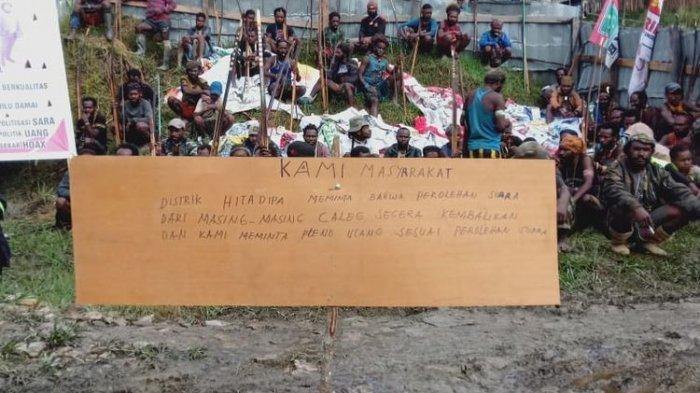 BERKUALITAS
ILU DAMAI
POLITISASI SARA
POLITIK UANG
SEBAR HOAX
KAMI MASYARAKAT
DISTRIK HITADIPA MEMINTA BAHWA PEROLEHAN SUARA
DARI MASING-MASING CALEG SEGERA KEMBALIKAN
DAN KAMI MEMINTA PLENO ULANG SESUAI PEROLEHAN SUARA